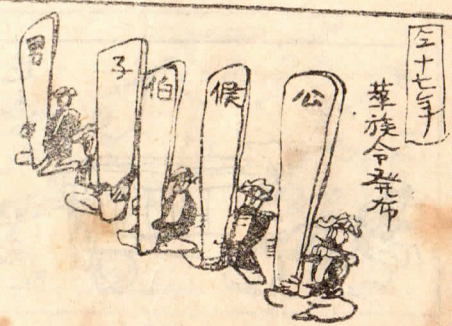 仝十七年
華族令發布
公
侯
伯
子
男